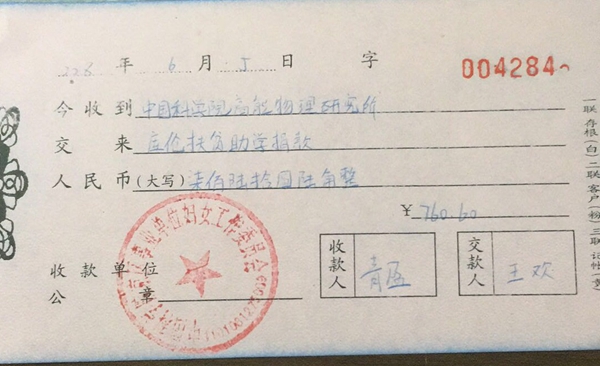 年 6 月 5 日 字 004284
今收到 中国科学院高能物理研究所
交来 库伦扶贫助学捐款
人民币(大写) 柒佰陆拾圆陆角整
¥ 760.60
收款单位
公章
收款人 青盈
交款人 王欢
事业单位妇女工作委员会
一联存根(白)二联客户(粉)三联记帐